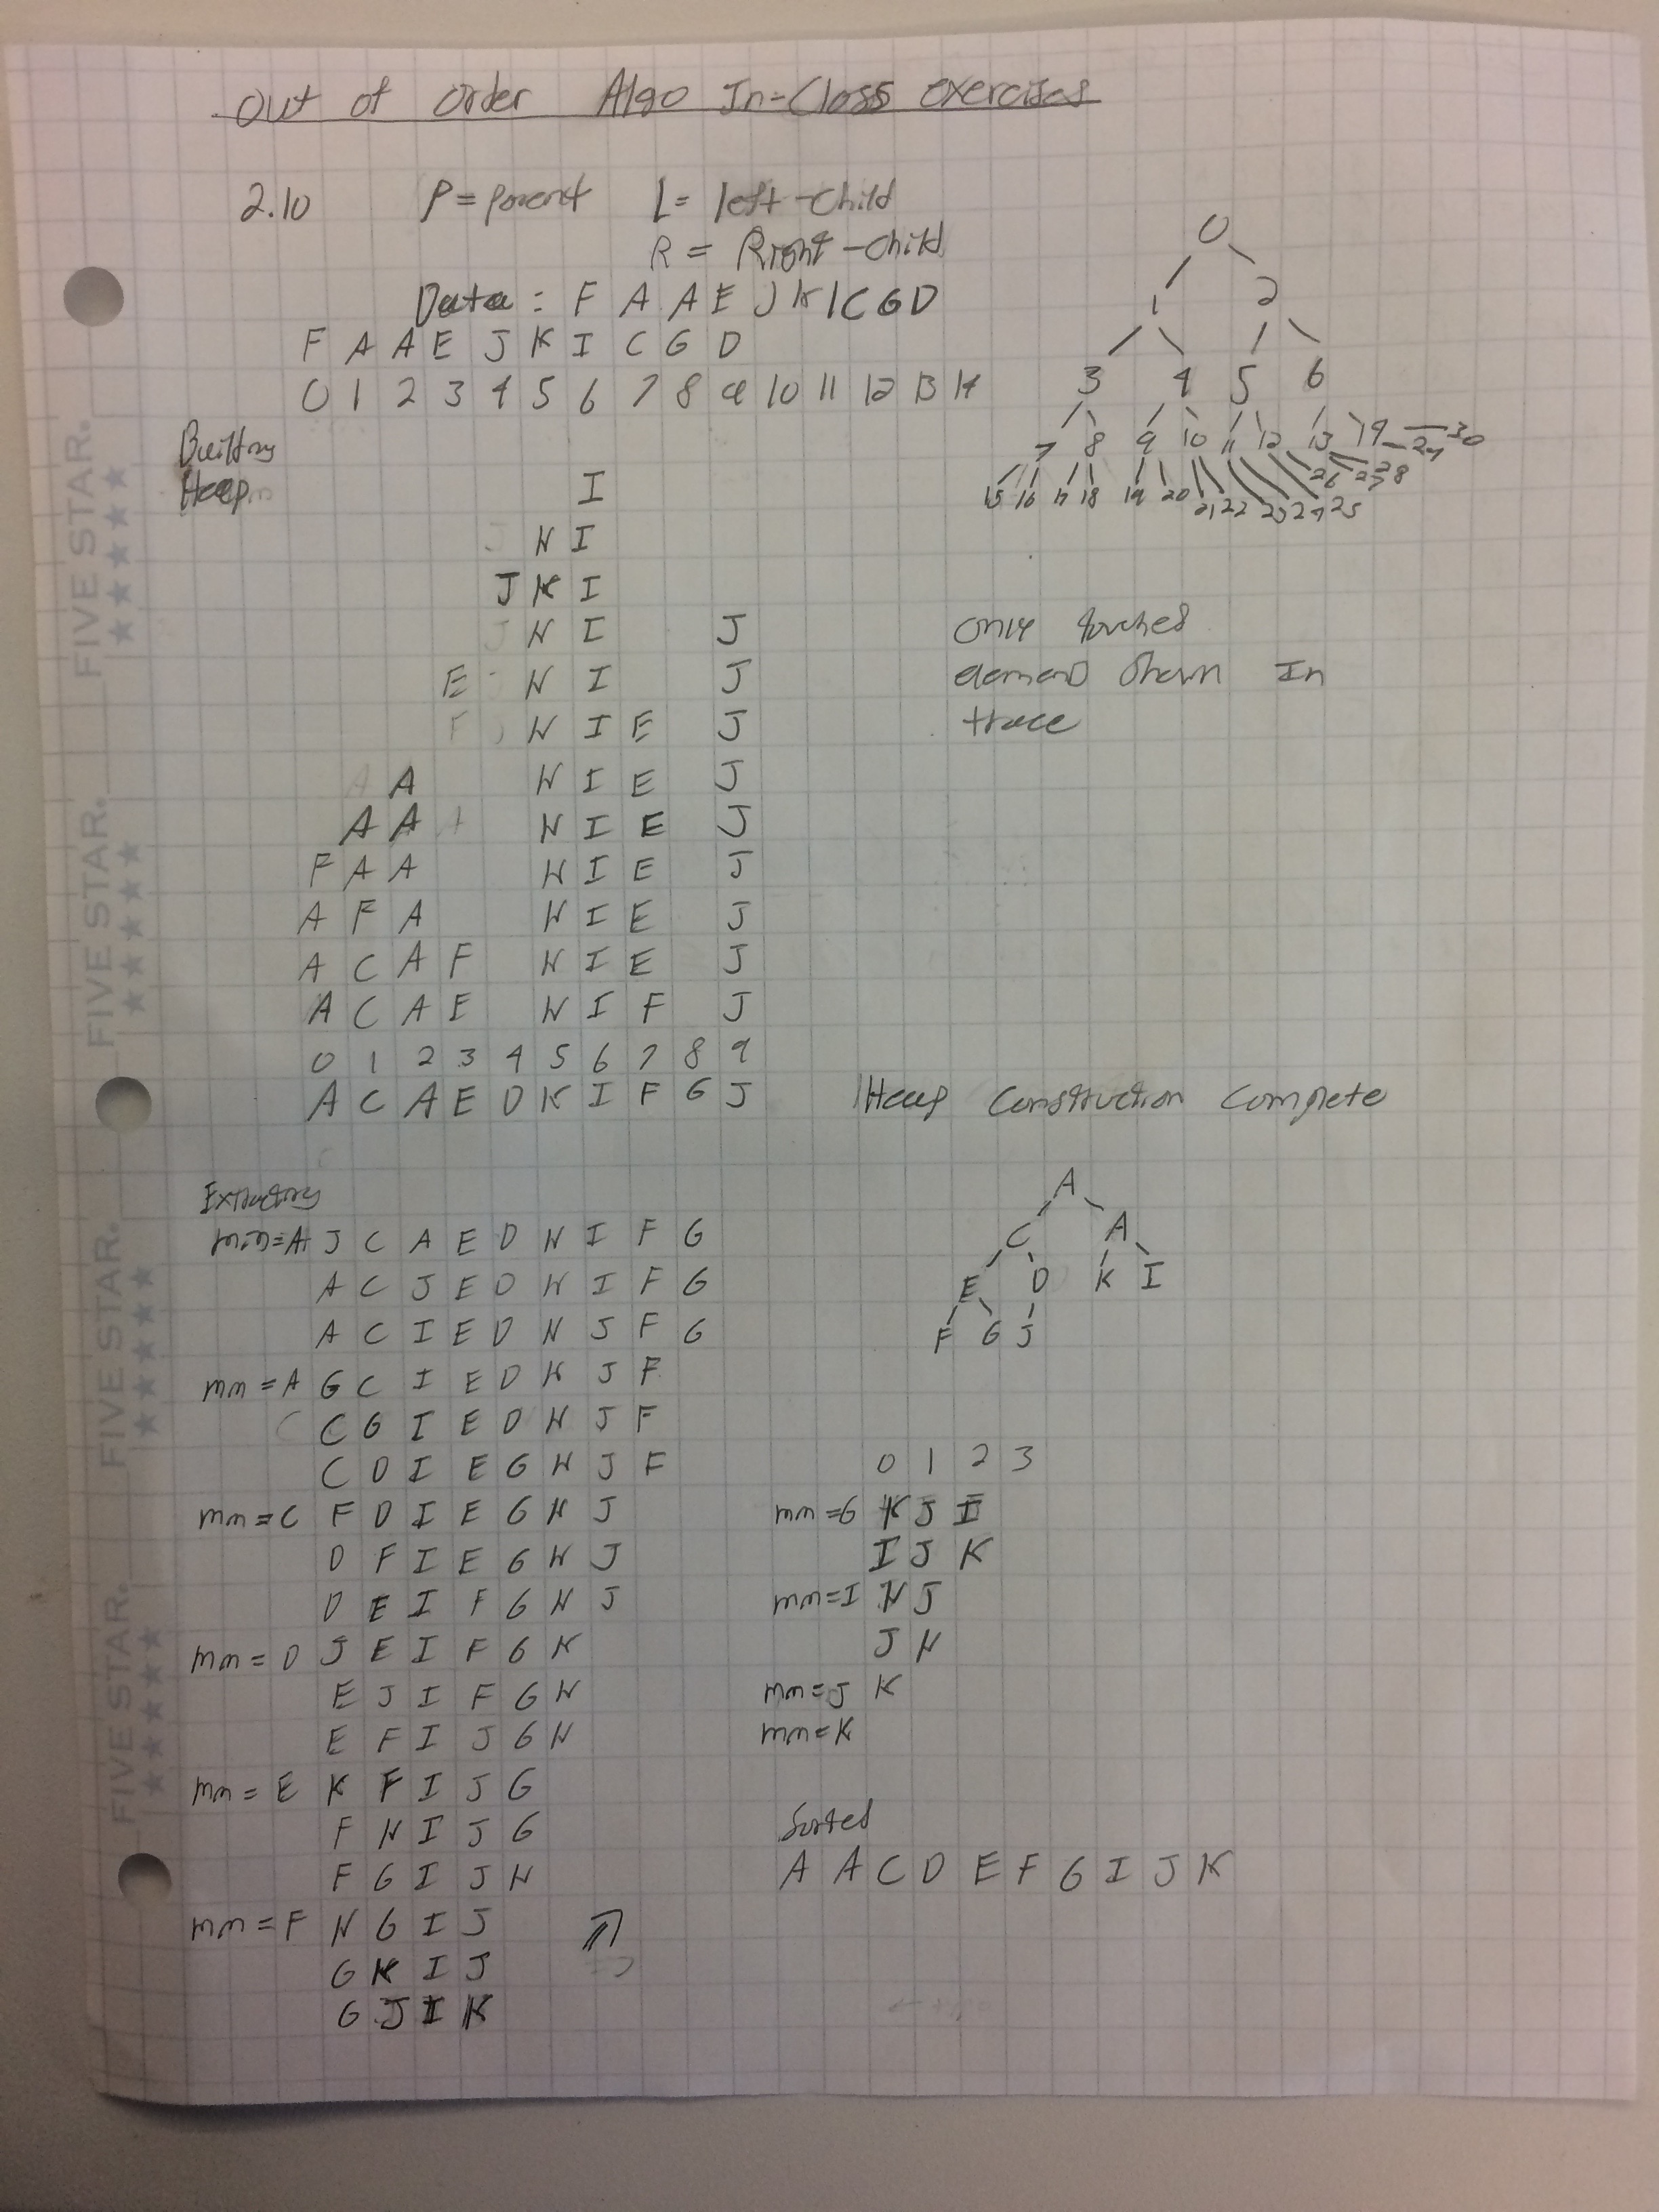 Out of Order Algo In-Class exercises
2.10 P = Parent L = left-child
R = Right-child
Data : F A A E J K I C G D
F A A E J K I C G D
0 1 2 3 4 5 6 7 8 9 10 11 12 13 14
0
1 2
3 4 5 6
7 8 9 10 11 12 13 14
15 16 17 18 19 20 21 22 23 24 25 26 27 28 29 30
Building
Heap
I
K I
J K I
K I J
E K I J
K I E J
A K I E J
A A K I E J
F A A K I E J
A F A K I E J
A C A F K I E J
A C A E K I F J
0 1 2 3 4 5 6 7 8 9
A C A E D K I F G J
only touched
element shown In
trace
Heap Construction Complete
A
C A
E D K I
F G J
Extracting
min=A J C A E D K I F G
A C J E D K I F G
A C I E D K J F G
min = A G C I E D K J F
C G I E D K J F
C D I E G K J F
min = C F D I E G K J
D F I E G K J
D E I F G K J
min = D J E I F G K
E J I F G K
E F I J G K
min = E K F I J G
F K I J G
F G I J K
min = F K G I J
G K I J
G J I K
0 1 2 3
min = G K J I
I J K
min = I K J
J K
min = J K
min = K
Sorted
A A C D E F G I J K
FIVE STAR.
FIVE STAR.
FIVE STAR.
FIVE STAR.